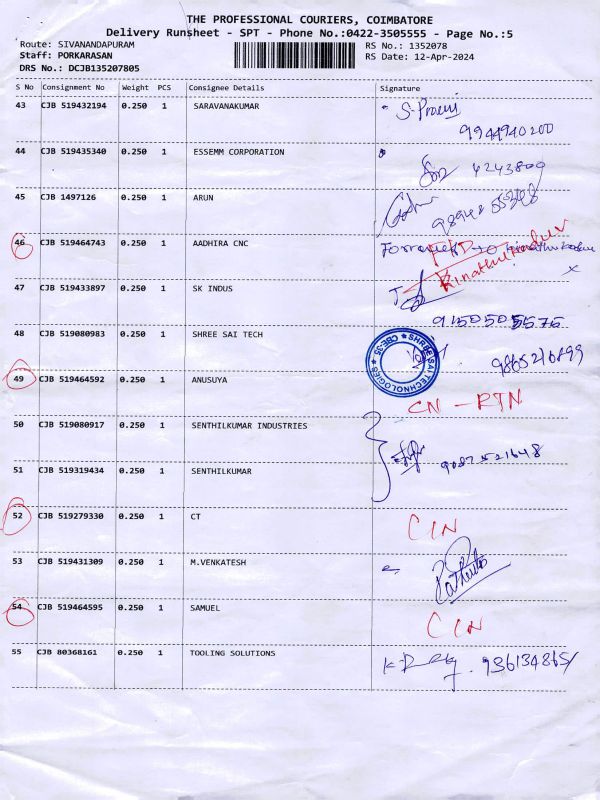 THE PROFESSIONAL COURIERS, COIMBATORE
Delivery Runsheet - SPT - Phone No.:0422-3505555 - Page No.:5
Route: SIVANANDAPURAM RS No.: 1352078
Staff: PORKARASAN RS Date: 12-Apr-2024
DRS No.: DCJB135207805
S No Consignment No Weight PCS Consignee Details Signature
43 CJB 519432194 0.250 1 SARAVANAKUMAR
9944940200
44 CJB 519435340 0.250 1 ESSEMM CORPORATION
45 CJB 1497126 0.250 1 ARUN
46 CJB 519464743 0.250 1 AADHIRA CNC
Kinathukaduv
47 CJB 519433897 0.250 1 SK INDUS
9150505576
48 CJB 519080983 0.250 1 SHREE SAI TECH
SHREE SAI TECHNOLOGIES CBE-35
49 CJB 519464592 0.250 1 ANUSUYA
CN - RTN
50 CJB 519080917 0.250 1 SENTHILKUMAR INDUSTRIES
9087521648
51 CJB 519319434 0.250 1 SENTHILKUMAR
52 CJB 519279330 0.250 1 CT
CIN
53 CJB 519431309 0.250 1 M.VENKATESH
54 CJB 519464595 0.250 1 SAMUEL
CIN
55 CJB 80368161 0.250 1 TOOLING SOLUTIONS